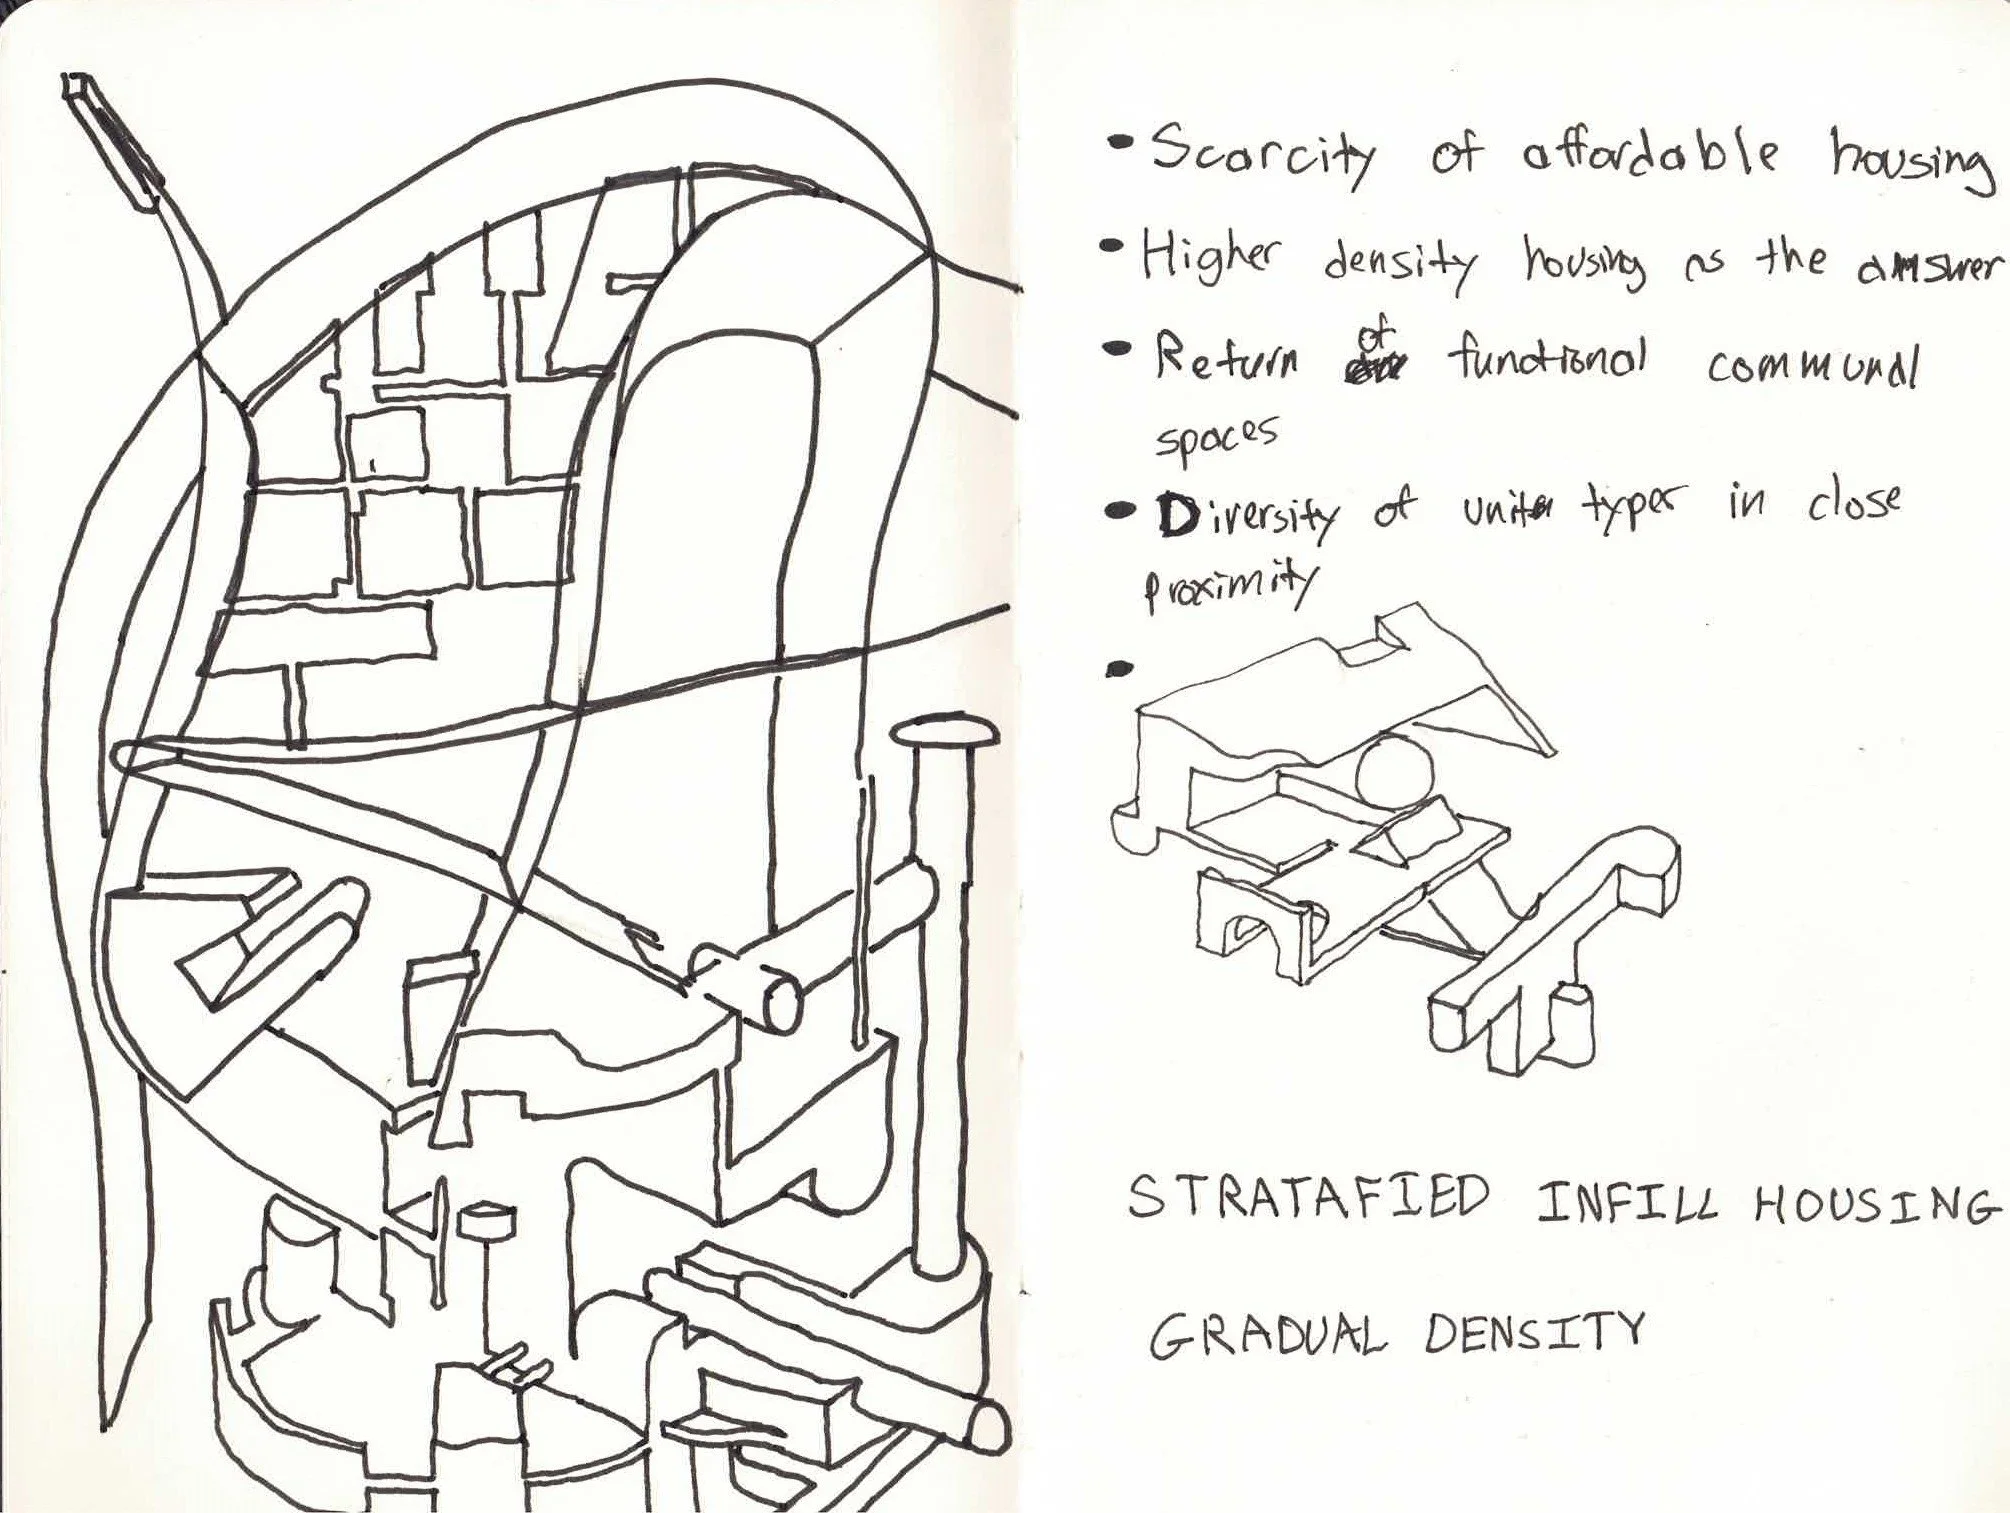 • Scarcity of affordable housing
• Higher density housing as the answer
• Return of functional communal
spaces
• Diversity of unit types in close
proximity
•
STRATAFIED INFILL HOUSING
GRADUAL DENSITY